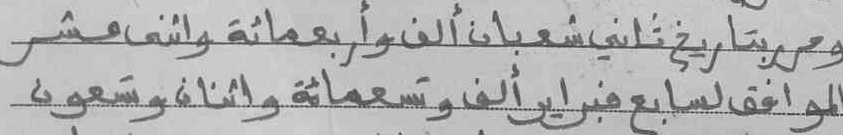 وحرر بتاريخ ثاني شعبان ألف وأربعمائة واثنى عشر
الموافق لسابع فبراير ألف وتسعمائة واثنان وتسعون